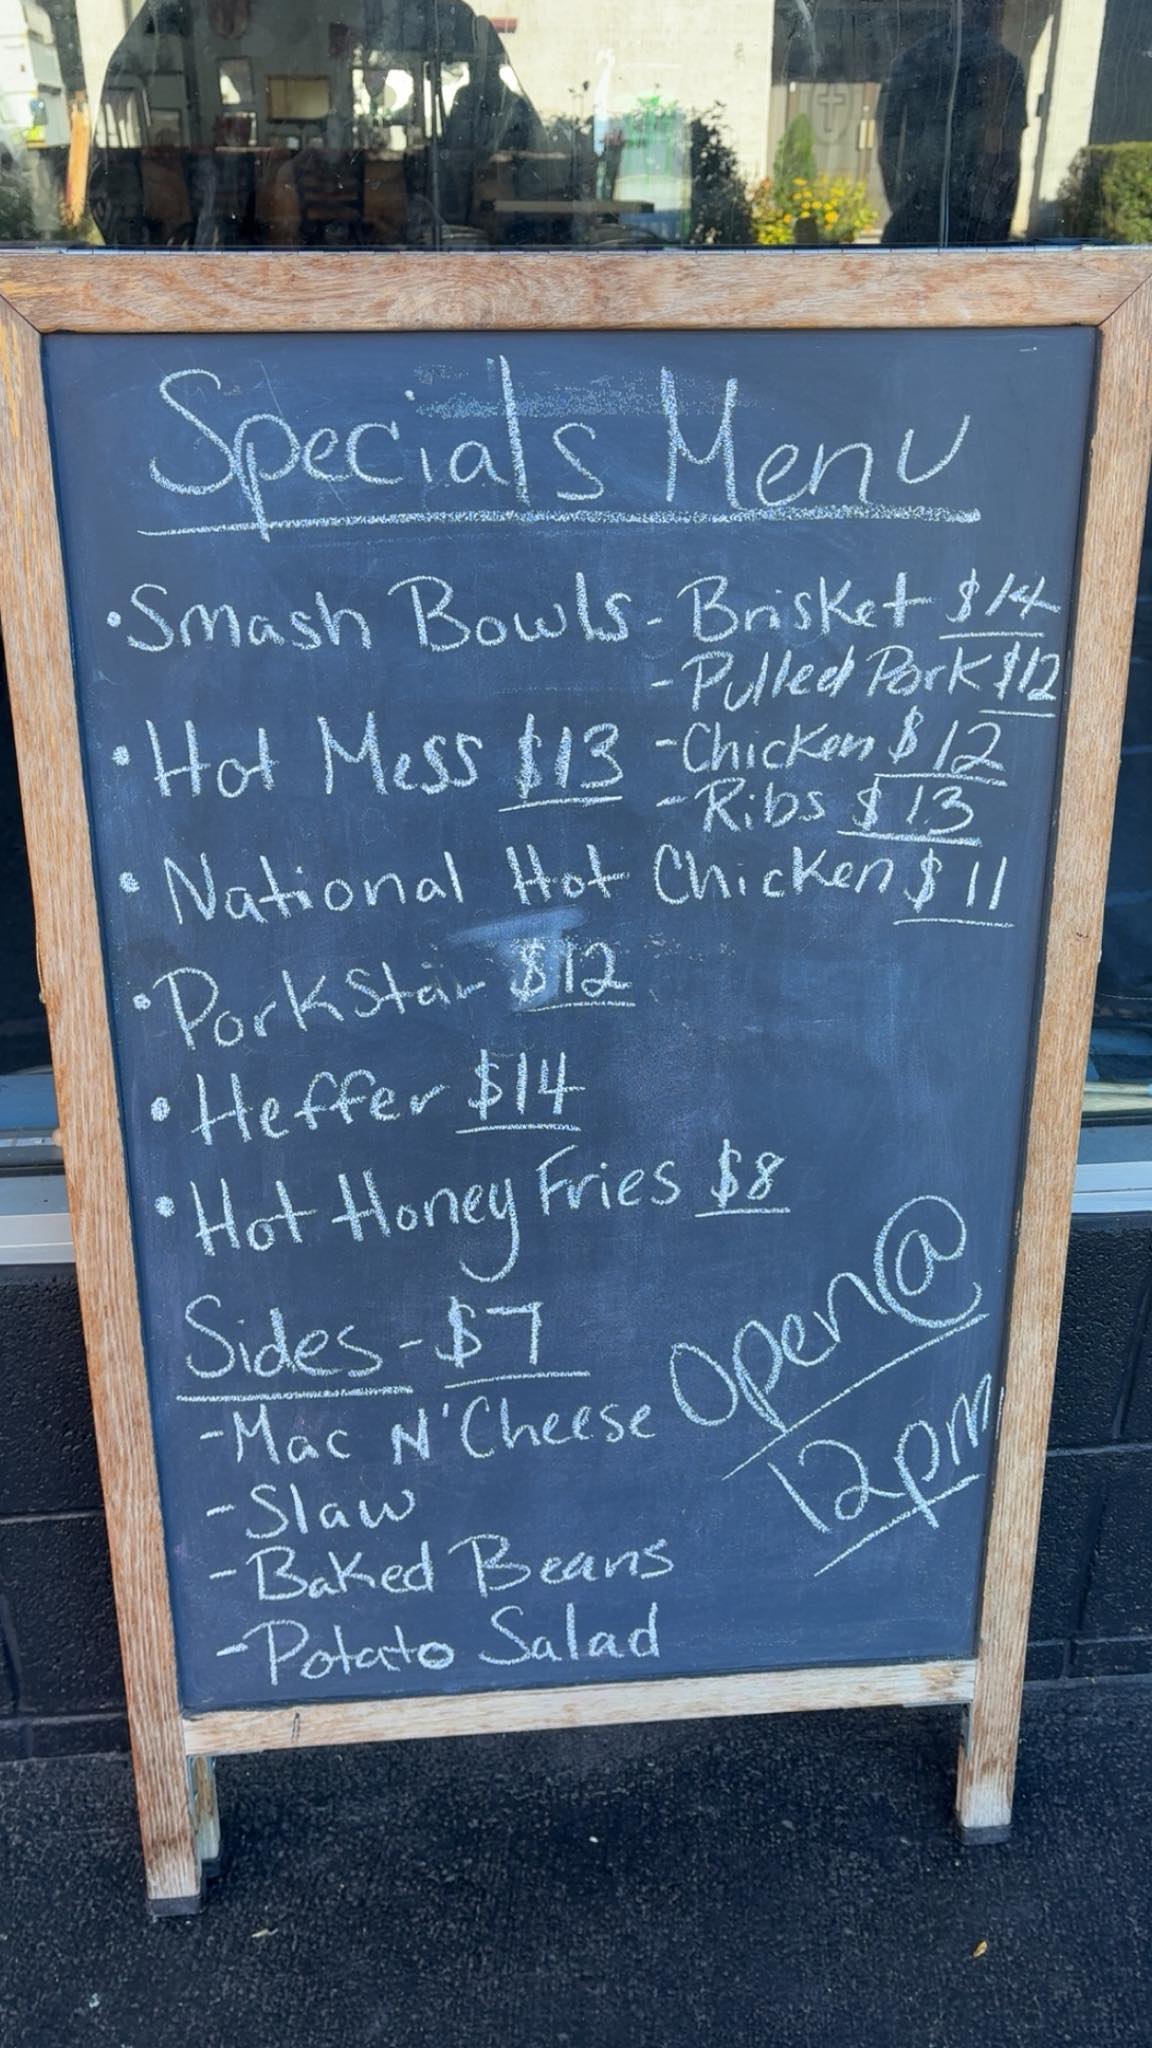 Specials Menu
• Smash Bowls - Brisket $14
- Pulled Pork $12
• Hot Mess $13 - Chicken $12
- Ribs $13
• National Hot Chicken $11
• Porkstar $12
• Heffer $14
• Hot Honey Fries $8
Sides - $7
- Mac N' Cheese
- Slaw
- Baked Beans
- Potato Salad
Open @
12pm